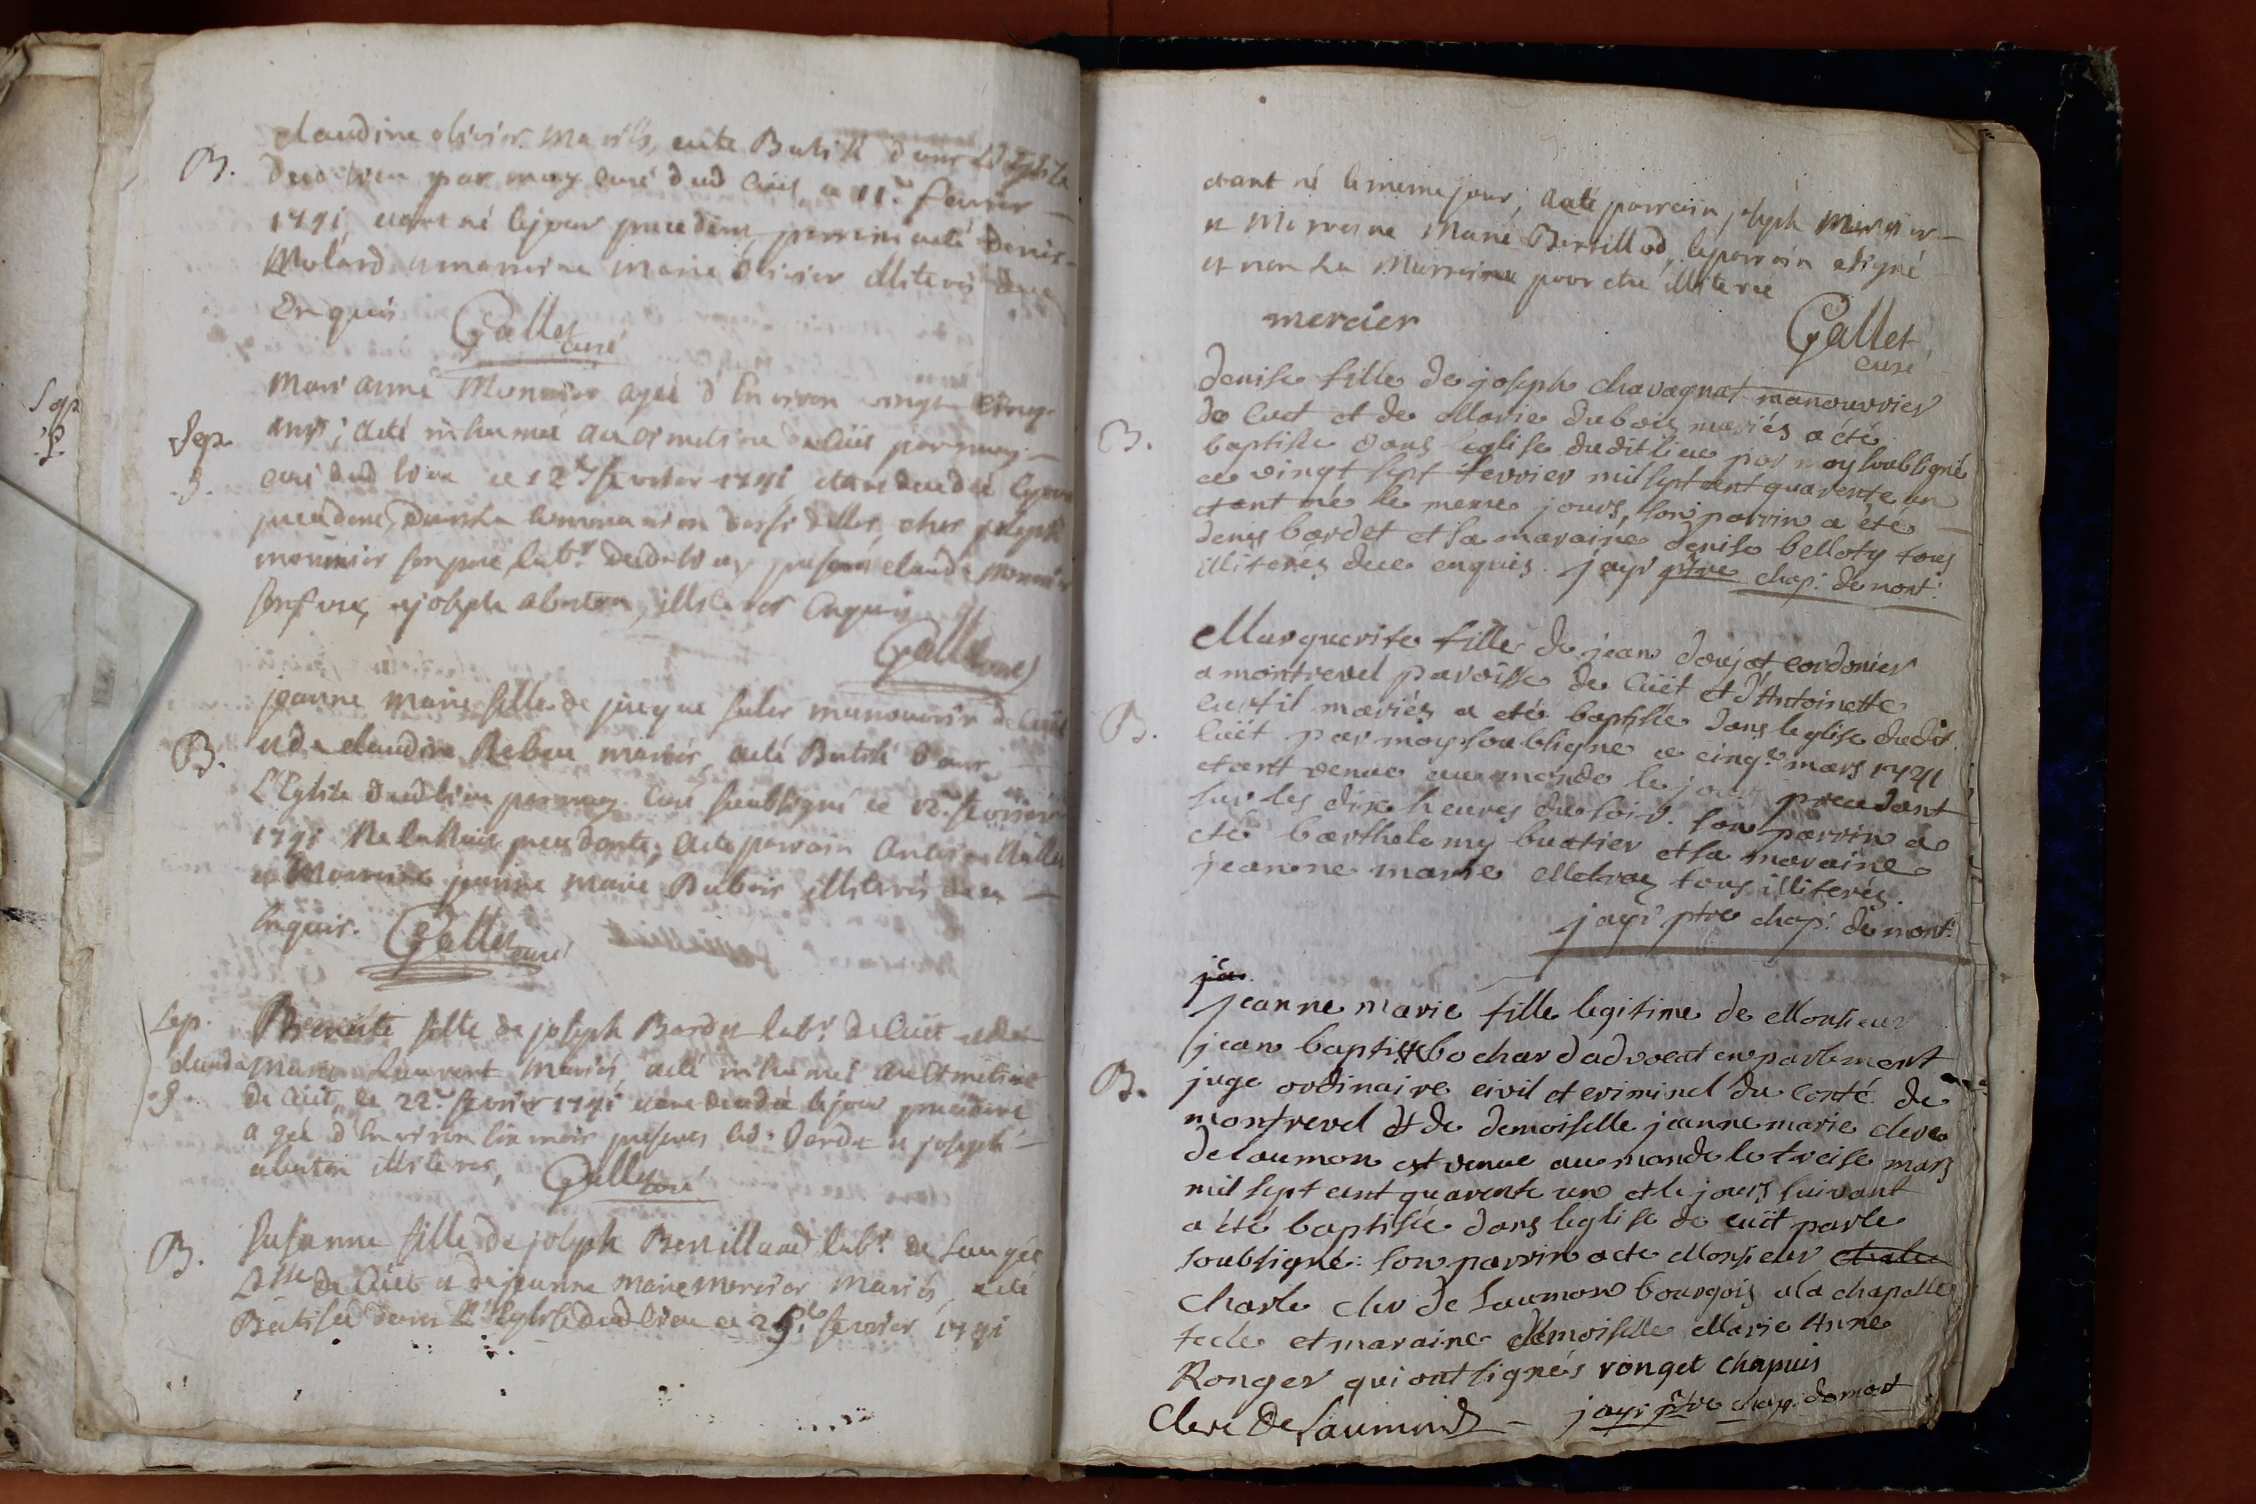 claudine olivier mariés, a eté Batisé dans L'Eglise
B.
dud lieu par moy curé dud Cüet ce 11e fevrier
1741, etant né le jour precedent, parrain a eté denis
Molard et marraine marie olivier illiterés de ce
Enquis
Gallet
curé
Mari anne Monnier ageé d'Environ vingt cinq
Sep.
ans, a eté inhumeé au cimetiere de Cüet par moy
9.
curé dud lieu ce 12e fevrier 1741 etant decedeé le jour
precedent, dans la communion des fidelles, chez joseph
monnier son pere labr. dud lieu, presens claude monnier
son frere, et joseph alontin, illiterés Enquis
Gallet curé
jeanne marie fille de jacque suler manouvrier de Cüet
B.
et de claudine Rebou mariés, a eté Batisé dans
L'Eglise dud lieu par moy curé soubsigné ce 12e fevrier
1741 Né la Nuit precedente, a eté parrain Antoine
et Marraine jeanne marie Dubois illiterés de ce
Enquis.
Gallet
curé
Sep.
Benoite fille de joseph Bardet labr. de Cüet et de
claudа marie Laurent mariés, a eté inhumeé au Cimetiere
9.
de Cüet, ce 22e fevrier 1741 etant decedeé le jour precedent
ageé d'Environ six mois presens led. Berdet et joseph
alontin illiterés,
Gallet
curé
B.
Susanne fille de joseph Berrilliod labr. de
de Cüet et de jeanne marie mercier mariés, a eté
Batiseé dans L'Eglise dud lieu ce 25e fevrier 1741
etant né le meme jour, a eté parrain joseph Mercier
et Marraine Marie Berrillod, le parrain a signé
et non La Marraine pour etre illiteree
mercier
Gallet
curé
denise fille de joseph chavagnat manouvrier
de Cuet et de Marie dubois mariés a été
B.
baptiseé dans l'eglise dudit lieu par moy soubsigné
ce vingt sept fevrier mil sept cent quarente un
etant née le meme jours, son parrin a été
denis bardet et sa maraine denise belloty tous
illiterés de ce enquis. jayr ptre chap: de mont:
Marguerite fille de jean doujat cordonier
a montrevel paroisse de Cüet et d'Antoinette
curtil mariés a eté baptisée dans leglise dudit
B.
Cüet par moy soubsigné ce cinqe mars 1741
etant venue au monde le jour precedent
sur les dix heures du soir. son parrin a
eté barthelemy buatier et sa maraine
jeanne marie Mehraz tous illiterés.
jayr ptre chap: de mont:
jea
jeanne marie fille legitime de Monsieur
jean baptiste bochard advocat en parlement
B.
juge ordinaire civil et criminel du Conté de
montrevel et de demoiselle jeanne marie clerc
delaumon est venue au monde le treise mars
mil sept cent quarente un et le jours suivant
a été baptisée dans leglise de cuët par le
soubsigné: son parrin a ete Monsieur
Charle cler de Laumon bourgois a la chapelle
tecle et maraine demoiselle Marie Anne
Ronger qui ont signés ronget chapuis
Clerc De Laumond jayr ptre chap. de mont